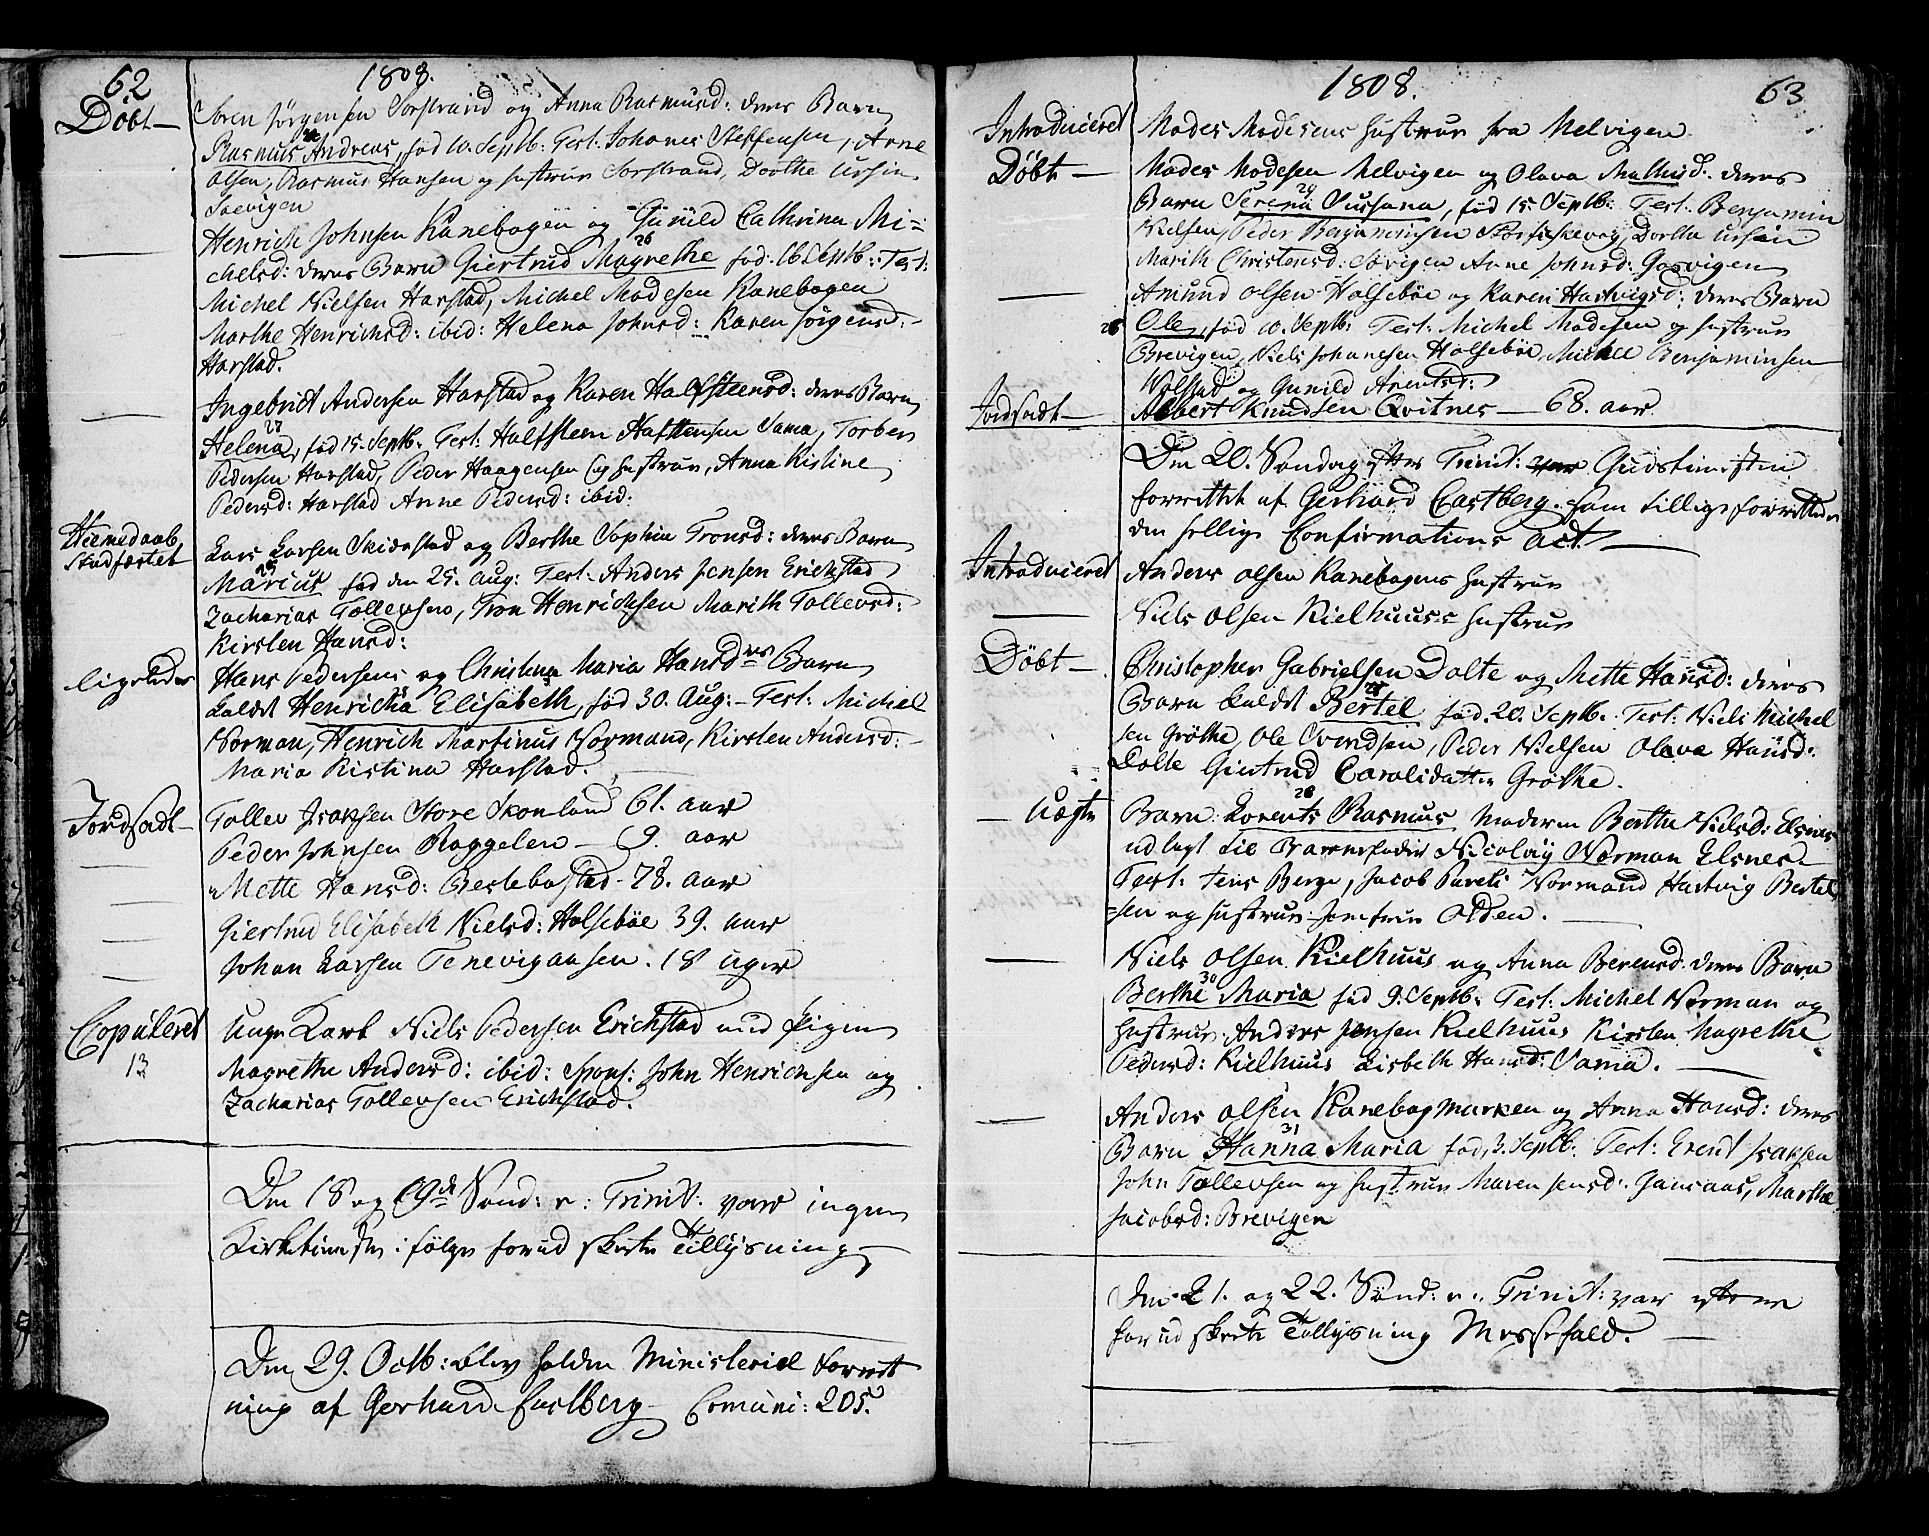 62
1808.
Døbt— Sören Jörgensen Sorstrand og Anna Rasmusd: deres Barn
Rasmus Andreas, föd 10. Septb: Test: Johanes Steffensen, Arne
Olsen, Rasmus Hansen og Hustrue Sorstrand, Dorthe
Soevigen
— Henrich Johnsen Kanebogen og Gunild Cathrina Mi=
chelsd: deres Barn Giertrud Magrethe föd. 16 Septb: Test:
26
Michel Nielsen Harstad, Michel Madesen Kanebogen
Marthe Henrichsd: ibid: Helena Johnsd: Karen Jörgensd:
Harstad.
— Ingebrict Andersen Harstad og Karen Halfsteensd: deres Barn
27
Helena, föd 15. Septb: Test: Halfsteen Halfstensen Vama, Torber
Pedersen Harstad, Peder Haagensen og Hustrue, Anna Kistine
Pedersd: Harstad Anne Pedersd: ibid.
Hiemedaab
Stadfæstet
Lars Larsen Skidestad og Berthe Sophia Tronsd: deres Barn
Marius föd den 25. Aug: Test: Anders Jensen Erichstad
Zacharias Tollevsens, Tron Henrichsen Marith Tollevsd:
Kirsten Hansd:
ligeledes Hans Pedersens og Christina Maria Hansd deres Barn
kaldt Henricha Elisabeth, föd 30. Aug:— Test: Michel
Norman, Henrich Martinus Normand, Kirsten Andersd:
Maria Kistina Harstad.
Jordsadt— Tollev Isaksen Store Skonland 61. aar
— Peder Johnsen Roggelen — 9. aar
— Mette Hansd: Beslebostad— 78. aar
— Giertrud Elisabeth Nielsd: Halsebøe 39. aar
— Johan Larsen Tenevigaasen. 18 uger
Copuleret
13
Unge Karl Niels Pedersen Erichstad med Pigen
Magrethe Andersd: ibid: Spons: John Henrichsen og
Zacharias Tollevsen Erichstad.
Den 18 og 19de Sönd: e: Trinit: var ingen
Kirketienste i fölge forud skeete Tillysning
Den 29. Octb: blev holden Ministeriel forret
ning af Gerhard Castberg— Comuni: 205.
1808.
63
Introduceret Mades Madesens Hustrue fra Melvigen
Døbt— Mades Madesen Melvigen og Olava Mathisd: deres
29
Barn Serena Susana, föd 15. Septb: Test: Benjamin
Nielsen, Peder Benjaminsen Dorthe
Marith Christensd: Sørvigen Anne Johnsd: Gaasvigen
— Amund Olsen Halsebøe og Karen Hartvigsd: deres Barn
28 Ole, föd 10. Septb: Test: Michel Madesen og Hustrue
Brevigen, Niels Johanesen Halsebøe, Michel Benjaminsen
Wolstad og Gunild Arentsd:
Jordsadt— Albert Knudsen Qvitnes — 68. aar
Den 20. Söndag efter Trinit: var Gudstienesten
forrettet af Gerhard Castberg. som tillige forrettede
den hellige Confirmations Act—
Introduceret Anders Olsen Kanebogens Hustrue
— Niels Olsen Kielhuus= Hustrue
Døbt— Christopher Gabrielsen Dalte og Mette Hansd: deres
Barn kaldt Bertel föd. 20. Septb: Test: Niels Michel
sen Gröthe, Ole Svendsen, Peder Nielsen Olava Hansd:
Dalte Giertrud Carolidatter Gröthe.
— Uægte Barn: Lorents Rasmus Moderen Berthe Nielsd: Elsnes
28
udlagt til Barnefader Nicolay Norman Elsnes
Test: Jens Berge, Jacob Normand Hartvig Bertel
=sen og Hustrue Olden.
— Niels Olsen Kielhuus og Anna Berensd: deres Barn
30
Berthe Maria föd 9. Septb: Test: Michel Norman og
Hustrue, Anders Jensen Kielhuus Kirsten Magrethe
Pedersd: Kielhuus Lisbeth Hansd: Vama.
— Anders Olsen Kanebogmarken og Anna Hansd: deres
31
Barn Hanna Maria föd, 3. Septb: Test: Erent Isaksen
John Tollevsen og Hustrue Maren Jensd: Gansaas, Marthe
Jacobsd: Brevigen
Den 21. og 22. Sönd: e: Trinit: var efter
forud skeete Tillysning Messefald.